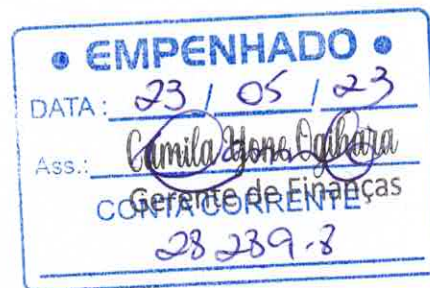 • EMPENHADO •
DATA: 23 / 05 / 23
Ass.: Camila Yono Ogihara
Gerente de Finanças
CONTA CORRENTE
28 289-8